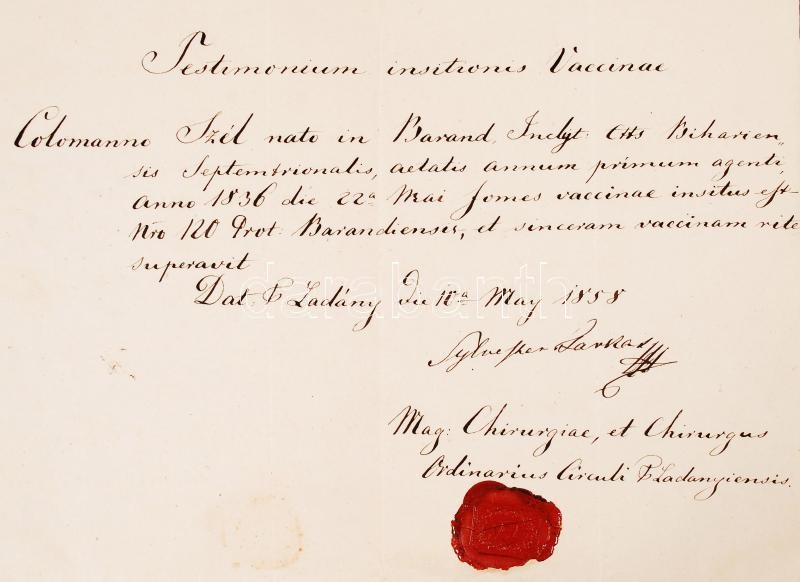 Testimonium insitionis Vaccinae
Colomanno Szél nato in Barand, Inclyt. Ctts Biharien„
sis Septemtrionalis, aetatis annum primum agenti,
anno 1836 die 22a Mai fomes vaccinae insitus est
Nro 120 Prot: Barandiensis, et sinceram vaccinam rite
superavit
darabanth
Dat. P Ladány die May 1858
Sylvester Farkas
Mag: Chirurgiae, et Chirurgus
Ordinarius Circuli P Ladanyiensis.